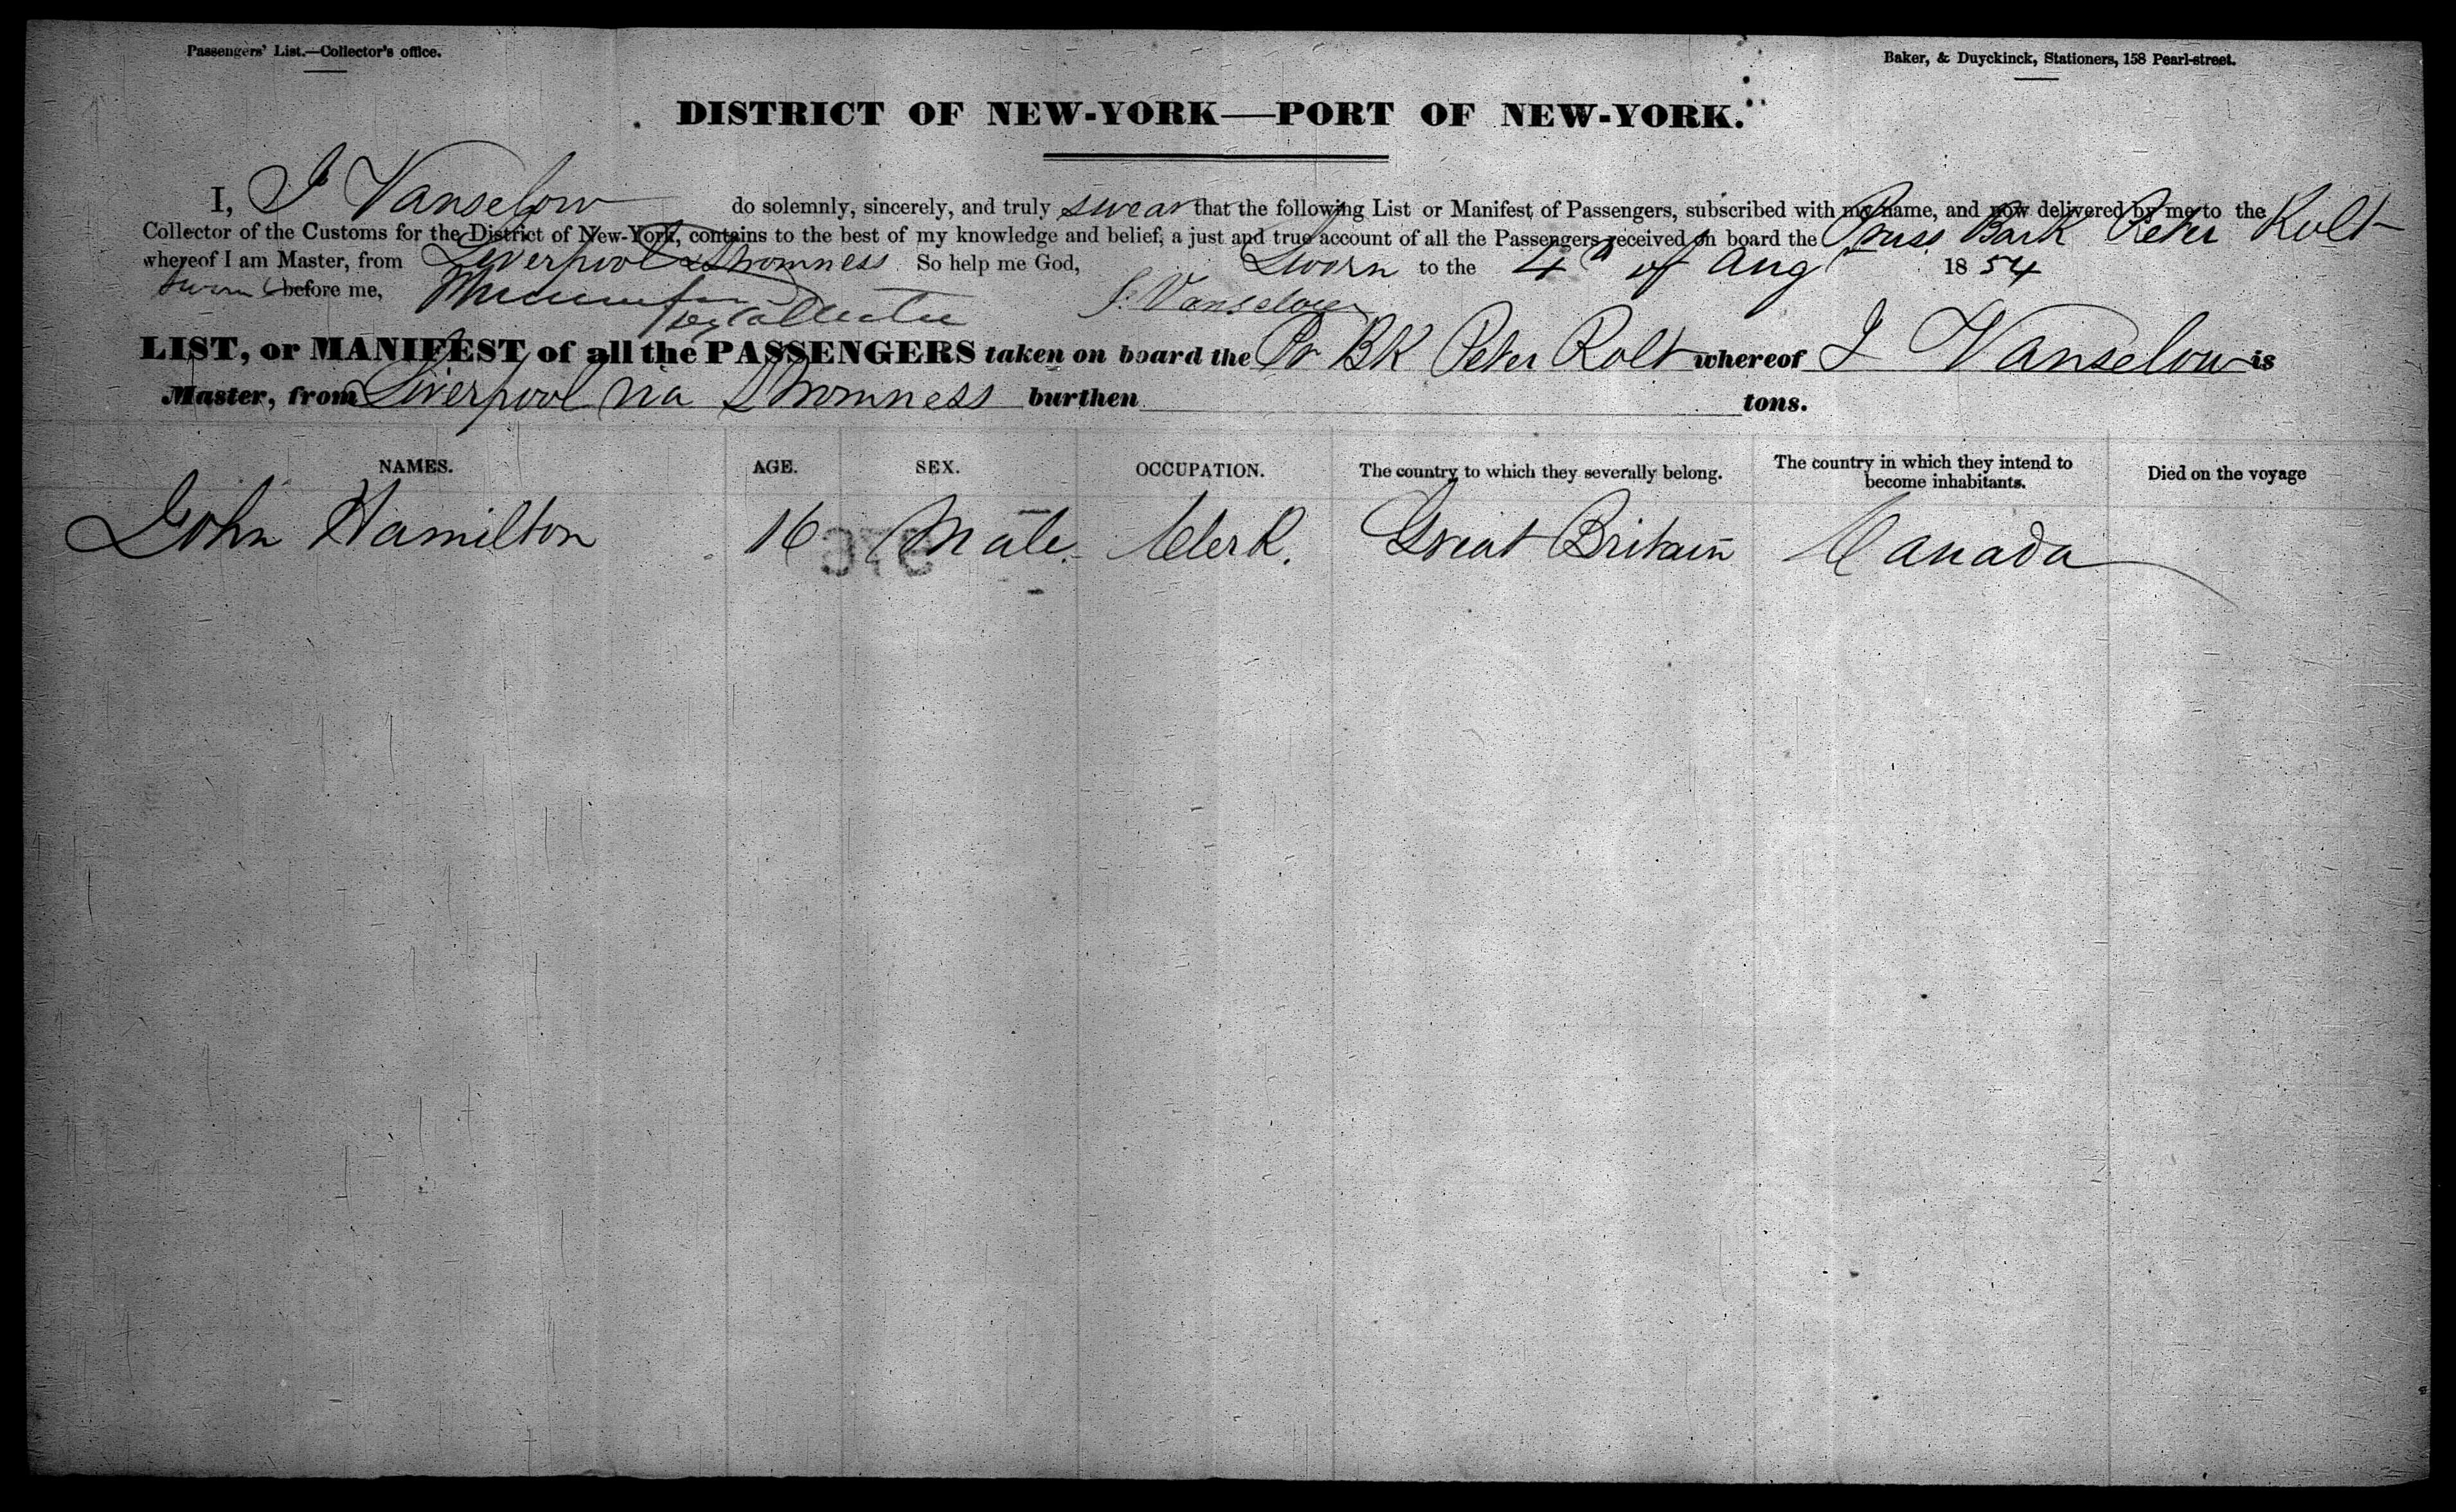 Passengers' List.—Collector's office.
Baker, & Duyckinck, Stationers, 158 Pearl-street.
DISTRICT OF NEW-YORK—PORT OF NEW-YORK.
I, J Vanselow do solemnly, sincerely, and truly swear that the following List or Manifest of Passengers, subscribed with my name, and now delivered by me to the
Collector of the Customs for the District of New-York, contains to the best of my knowledge and belief, a just and true account of all the Passengers received on board the Pruss Bark Peter Rolt
whereof I am Master, from Liverpool & Stromness So help me God, Sworn to the 4th of Aug 1854
before me, J. Vanselow
Dep Collector
LIST, or MANIFEST of all the PASSENGERS taken on board the Pr BK Peter Rolt whereof J Vanselow is
Master, from Liverpool via Stromness burthen tons.
NAMES. AGE. SEX. OCCUPATION. The country to which they severally belong. The country in which they intend to become inhabitants. Died on the voyage
John Hamilton 16 Male. Clerk. Great Britain Canada